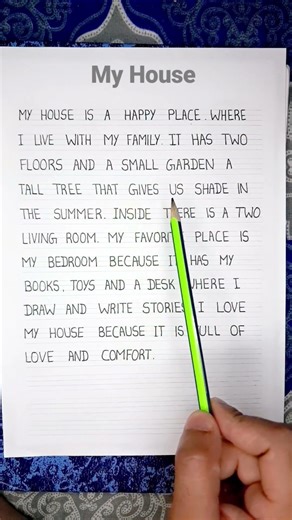 My House
MY HOUSE IS A HAPPY PLACE. WHERE
I LIVE WITH MY FAMILY. IT HAS TWO
FLOORS AND A SMALL GARDEN A
TALL TREE THAT GIVES US SHADE IN
THE SUMMER. INSIDE THERE IS A TWO
LIVING ROOM. MY FAVORITE PLACE IS
MY BEDROOM BECAUSE IT HAS MY
BOOKS, TOYS AND A DESK WHERE I
DRAW AND WRITE STORIES I LOVE
MY HOUSE BECAUSE IT IS FULL OF
LOVE AND COMFORT.